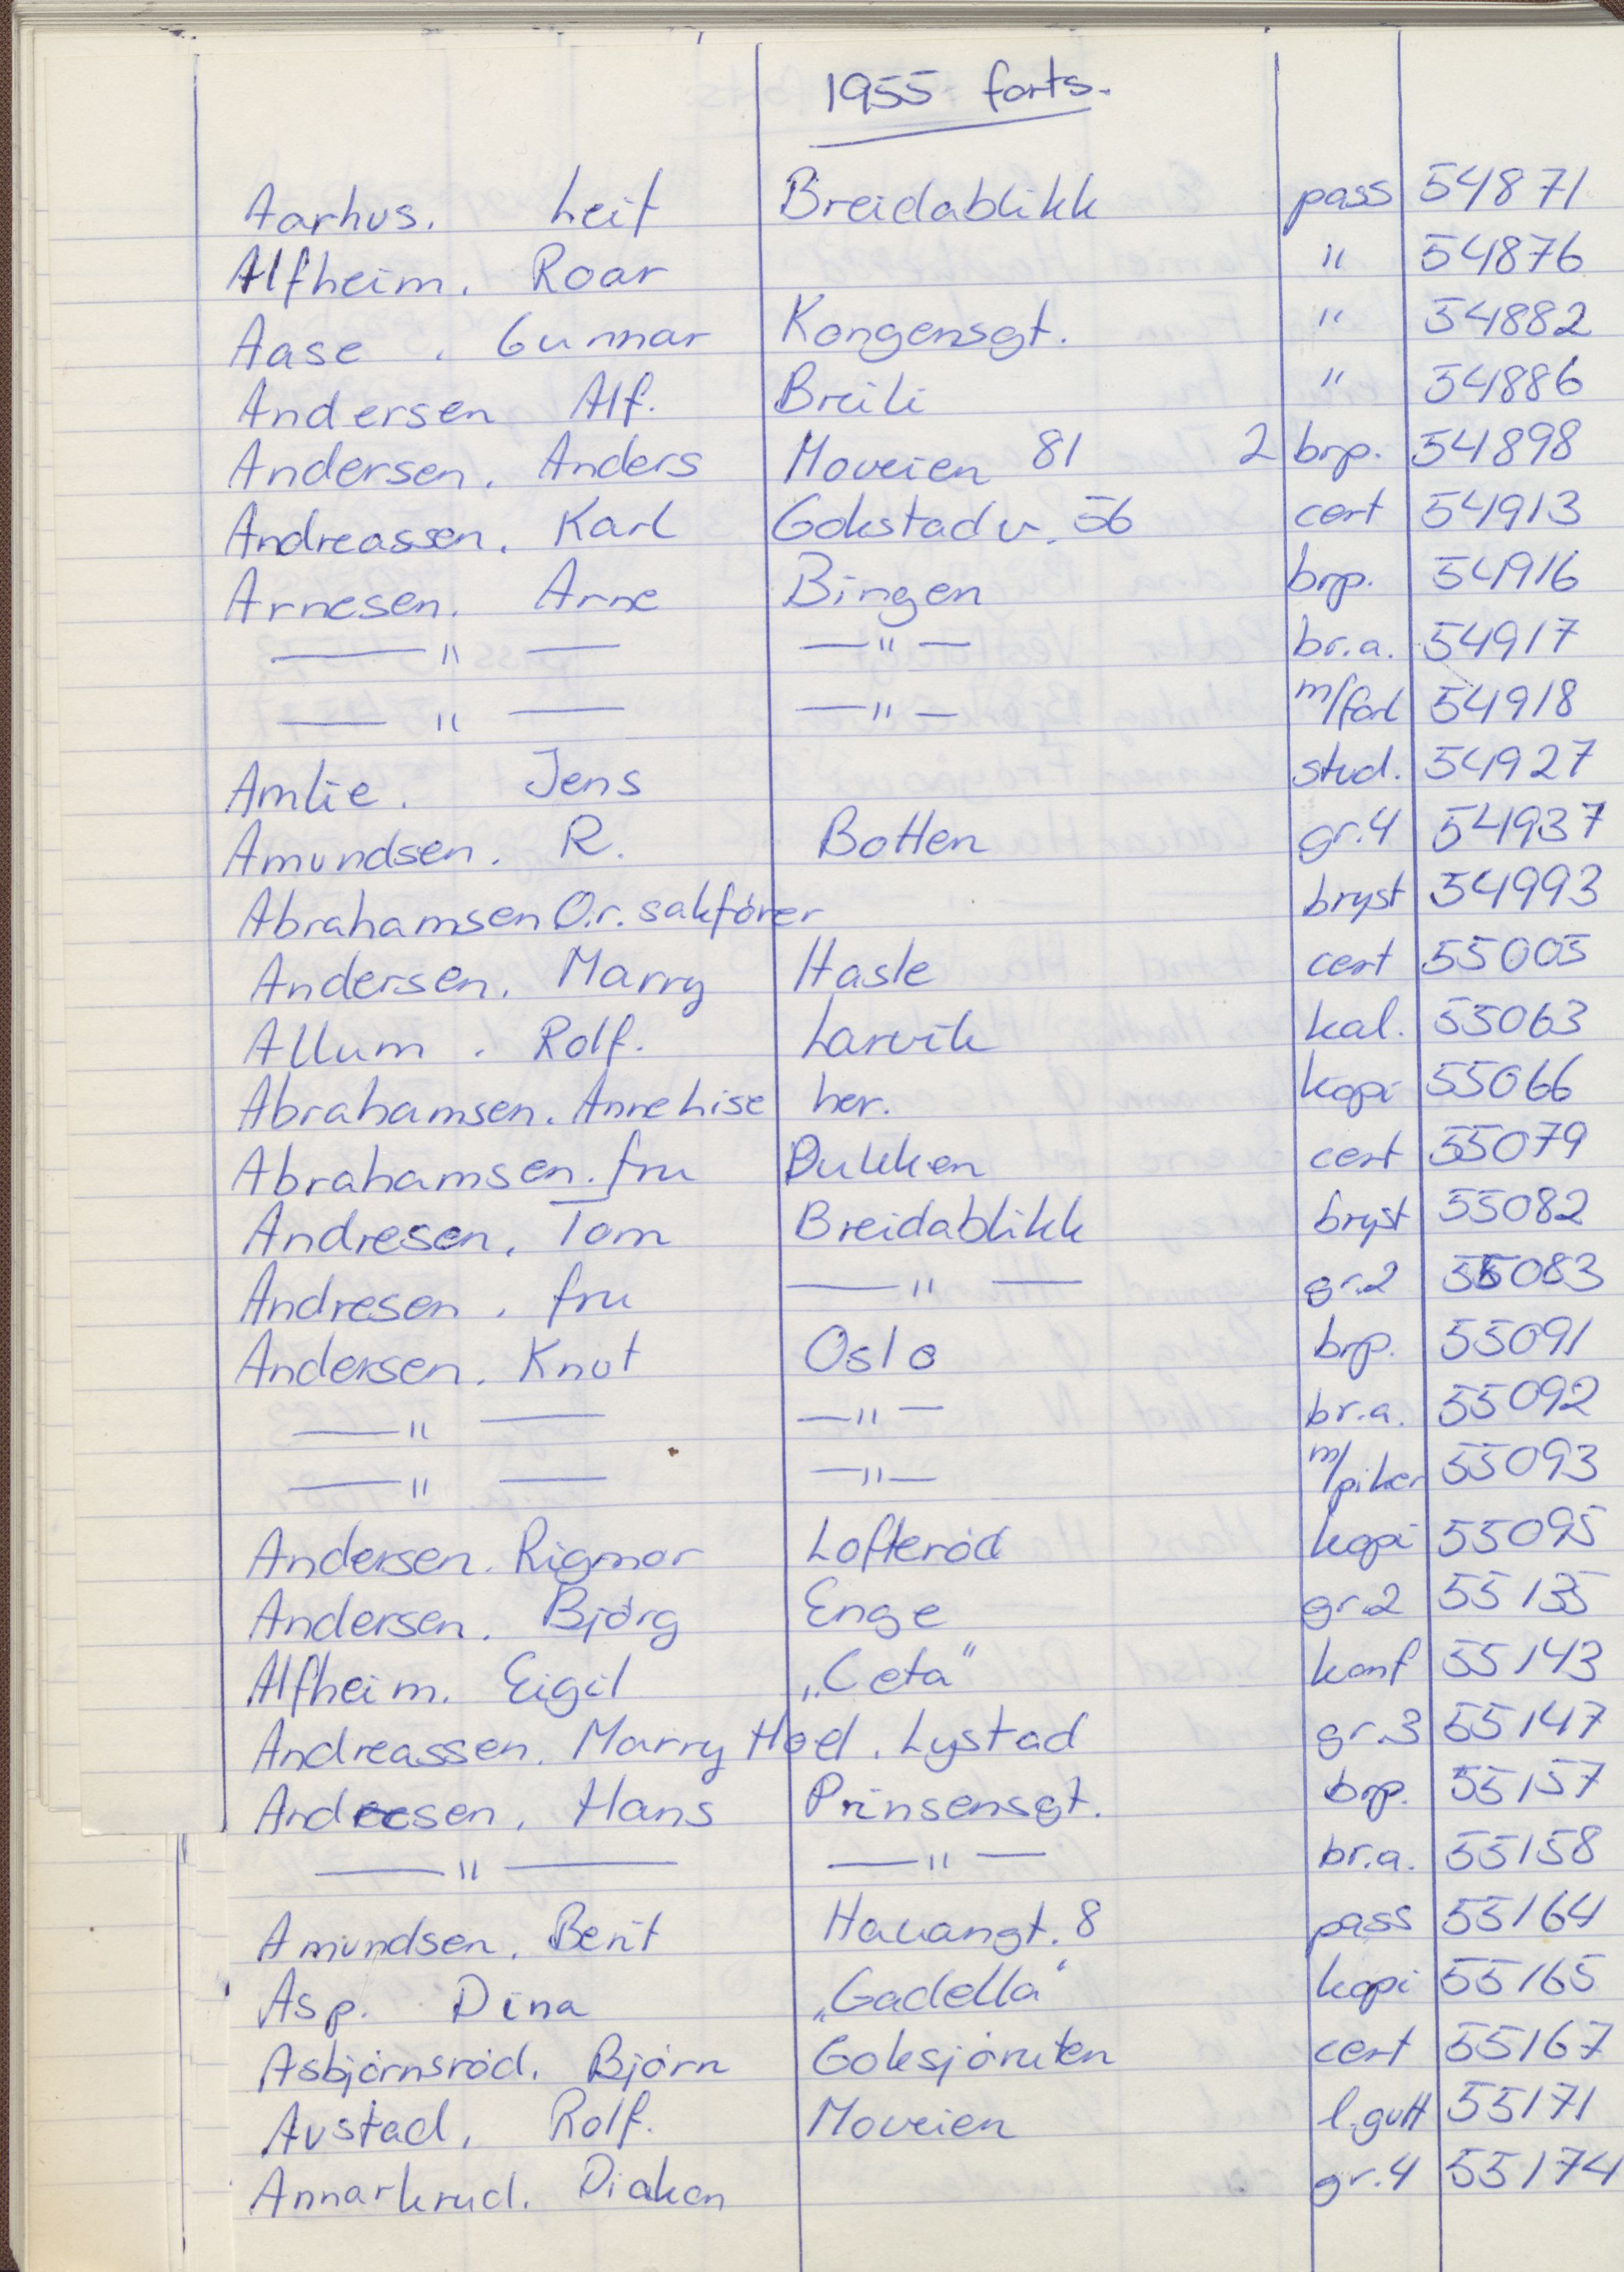 1955 forts.
Aarhus. Leif Breidablikk pass 54871
Alfheim. Roar " 54876
Aase . Gunnar Kongensgt. " 54882
Andersen Alf. Breili " 54886
Andersen. Anders Moveien 81 2 brp. 54898
Andreassen. Karl Gokstadv. 56 cert 54913
Arnesen. Arne Bingen brp. 54916
—— " —— — " — br.a. 54917
—— " —— — " — m/forl 54918
Amlie. Jens stud. 54927
Amundsen. R. Botten gr.4 54937
Abrahamsen O.r. sakfører bryst 54993
Andersen. Marry Hasle cert 55005
Allum . Rolf. Larvik kal. 55063
Abrahamsen. Anne Lise her. kopi 55066
Abrahamsen. fru Dukken cert 55079
Andresen. Tom Breidablikk bryst 55082
Andresen . fru —— " —— gr.2 55083
Andersen. Knut Oslo brp. 55091
—— " —— — " — br.a. 55092
—— " —— — " — m/piker 55093
Andersen. Rigmor Lofterød kopi 55095
Andersen. Bjørg Enge gr.2 55135
Alfheim. Eigil „Ceta" konf 55143
Andreassen. Marry Hoel. Lystad gr.3 55147
Andresen. Hans Prinsensgt. brp. 55157
—— " —— — " — br.a. 55158
Amundsen. Berit Hauangt. 8 pass 55164
Asp. Dina „Gadella" kopi 55165
Asbjørnsrød. Bjørn Goksjøruten cert 55167
Austad. Rolf. Moveien l.gutt 55171
Annarkrud. Diakon gr.4 55174